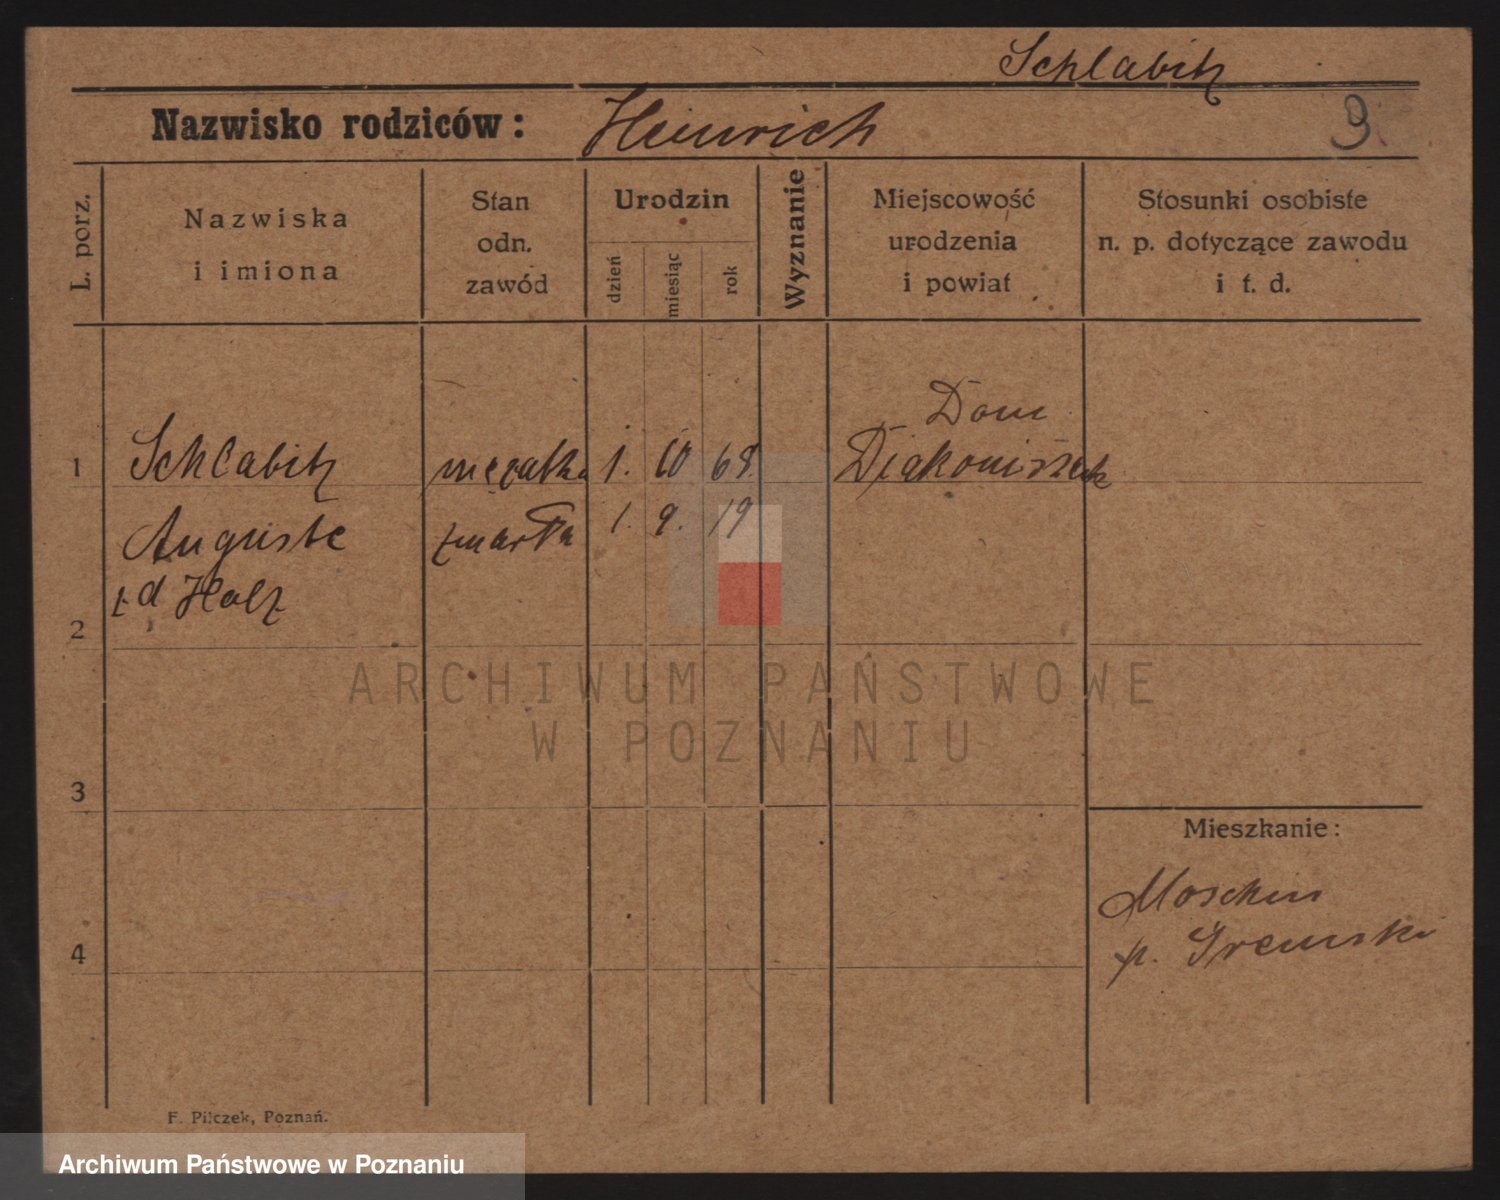 Schlabitz
Nazwisko rodziców: Heinrich
9
L. porz.
Nazwiska
i imiona
Stan
odn.
zawód
Urodzin
dzień
miesiąc
rok
Wyznanie
Miejscowość
urodzenia
i powiat
Stosunki osobiste
n. p. dotyczące zawodu
i t. d.
Dom
1 Schlabitz mężatka 1. 10 68 Diakoniszek
Auguste zmarła 1. 9. 19
z d Holz
2
ARCHIWUM PAŃSTWOWE
W POZNANIU
3
Mieszkanie:
Moschin
p. Sremski
4
F. Pilczek, Poznań.
Archiwum Państwowe w Poznaniu